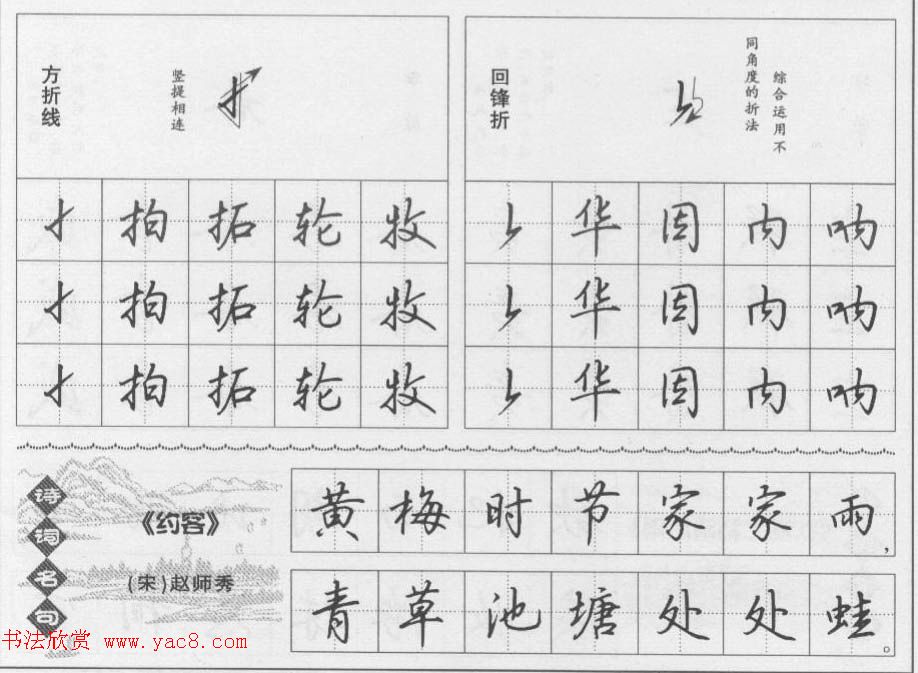 方折线
竖提相连
回锋折
综合运用不
同角度的折法
拍 拓 轮 牧
华 因 内 呐
拍 拓 轮 牧
华 因 内 呐
拍 拓 轮 牧
华 因 内 呐
诗词名句
《约客》
(宋)赵师秀
黄梅时节家家雨，
青草池塘处处蛙。
书法欣赏 www.yac8.com